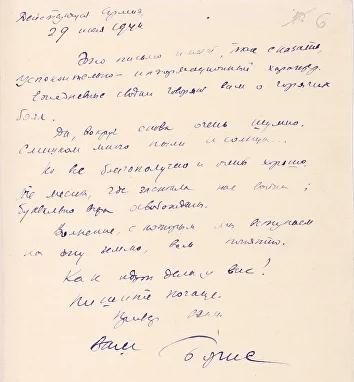 Действующая Армия,
29 июня 1944
6
Это письмо имеет, так сказать,
успокоительно-информационный характер.
Ежедневные сводки говорят вам о горячих
боях.
Да, вокруг снова очень шумно.
Слишком много пыли и солнца...
Но все благополучно и очень хорошо.
Те места, где застала нас война,
буквально освобождены.
Волнение, с которым мы вступаем
на эту землю, вам понятно.
Как идут дела у вас?
Пишите почаще.
Привет
Ваш Борис